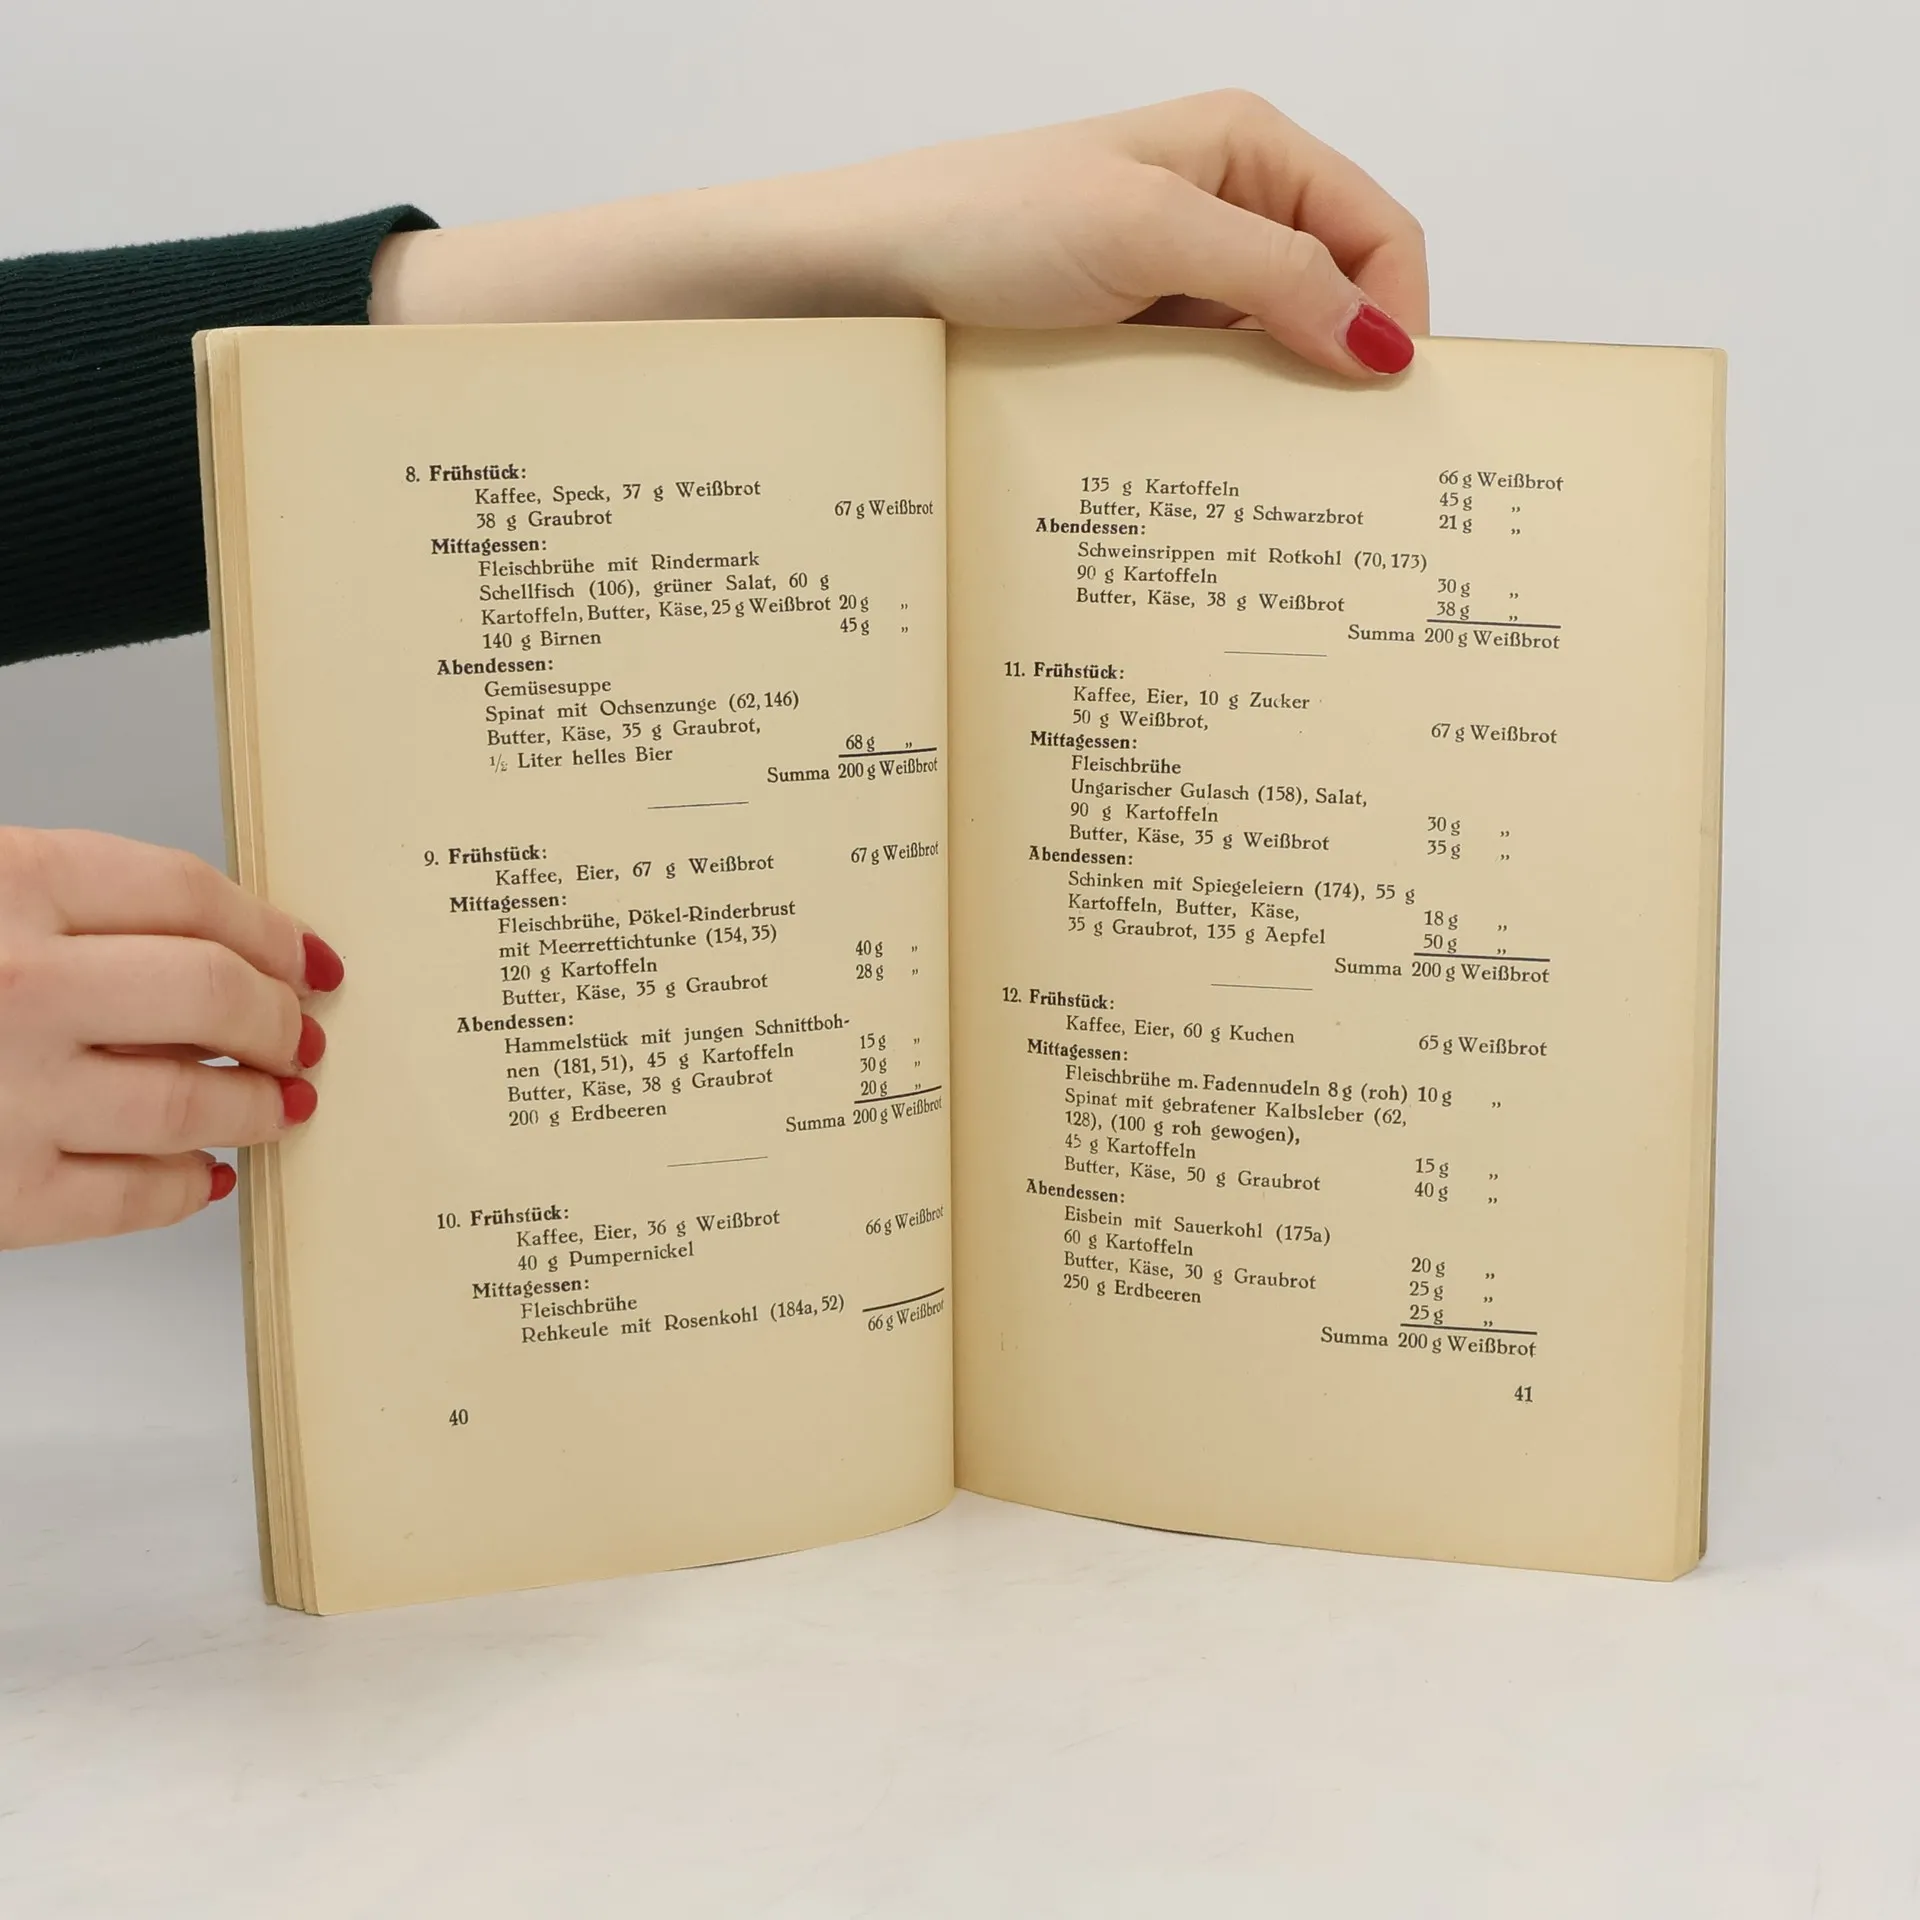 8. Frühstück:
Kaffee, Speck, 37 g Weißbrot
38 g Graubrot 67 g Weißbrot
Mittagessen:
Fleischbrühe mit Rindermark
Schellfisch (106), grüner Salat, 60 g
Kartoffeln, Butter, Käse, 25 g Weißbrot 20 g „
140 g Birnen 45 g „
Abendessen:
Gemüsesuppe
Spinat mit Ochsenzunge (62, 146)
Butter, Käse, 35 g Graubrot,
½ Liter helles Bier 68 g „
Summa 200 g Weißbrot
9. Frühstück:
Kaffee, Eier, 67 g Weißbrot 67 g Weißbrot
Mittagessen:
Fleischbrühe, Pökel-Rinderbrust
mit Meerrettichtunke (154, 35)
120 g Kartoffeln 40 g „
Butter, Käse, 35 g Graubrot 28 g „
Abendessen:
Hammelstück mit jungen Schnittboh-
nen (181, 51), 45 g Kartoffeln 15 g „
Butter, Käse, 38 g Graubrot 30 g „
200 g Erdbeeren 20 g „
Summa 200 g Weißbrot
10. Frühstück:
Kaffee, Eier, 36 g Weißbrot
40 g Pumpernickel 66 g Weißbrot
Mittagessen:
Fleischbrühe
Rehkeule mit Rosenkohl (184a, 52)
66 g Weißbrot
40
66 g Weißbrot
135 g Kartoffeln 45 g „
Butter, Käse, 27 g Schwarzbrot 21 g „
Abendessen:
Schweinsrippen mit Rotkohl (70, 173)
90 g Kartoffeln 30 g „
Butter, Käse, 38 g Weißbrot 38 g „
Summa 200 g Weißbrot
11. Frühstück:
Kaffee, Eier, 10 g Zucker
50 g Weißbrot, 67 g Weißbrot
Mittagessen:
Fleischbrühe
Ungarischer Gulasch (158), Salat,
90 g Kartoffeln 30 g „
Butter, Käse, 35 g Weißbrot 35 g „
Abendessen:
Schinken mit Spiegeleiern (174), 55 g
Kartoffeln, Butter, Käse, 18 g „
35 g Graubrot, 135 g Aepfel 50 g „
Summa 200 g Weißbrot
12. Frühstück:
Kaffee, Eier, 60 g Kuchen 65 g Weißbrot
Mittagessen:
Fleischbrühe m. Fadennudeln 8 g (roh) 10 g „
Spinat mit gebratener Kalbsleber (62,
128), (100 g roh gewogen),
45 g Kartoffeln 15 g „
Butter, Käse, 50 g Graubrot 40 g „
Abendessen:
Eisbein mit Sauerkohl (175a)
60 g Kartoffeln 20 g „
Butter, Käse, 30 g Graubrot 25 g „
250 g Erdbeeren 25 g „
Summa 200 g Weißbrot
41